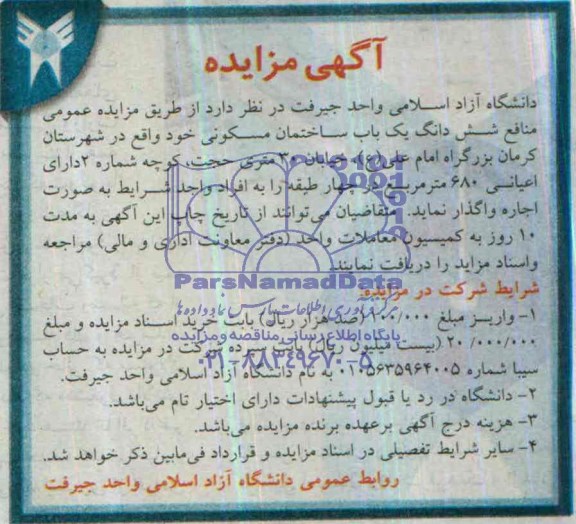 آگهی مزایده
دانشگاه آزاد اسلامی واحد جیرفت در نظر دارد از طریق مزایده عمومی
منافع شش دانگ یک باب ساختمان مسکونی خود واقع در شهرستان
کرمان بزرگراه امام علی(ع)، خیابان ۳۰ متری حجت، کوچه شماره ۲ دارای
اعیانی ۶۸۰ مترمربع در چهار طبقه را به افراد واجد شرایط به صورت
اجاره واگذار نماید. متقاضیان می‌توانند از تاریخ چاپ این آگهی به مدت
۱۰ روز به کمیسیون معاملات واحد (دفتر معاونت اداری و مالی) مراجعه
واسناد مزاید را دریافت نمایند.
ParsNamadData
شرایط شرکت در مزایده:
۱- واریز مبلغ ۱۰۰/۰۰۰ (صد هزار ریال) بابت خرید اسناد مزایده و مبلغ
پایگاه اطلاع رسانی مناقصه و مزایده
۲۰/۰۰۰/۰۰۰ (بیست میلیون ریال) بابت سپرده شرکت در مزایده به حساب
۰۲۱-۸۸۳۴۹۶۷۰-۵
سیبا شماره ۰۱۰۵۶۳۵۹۶۴۰۰۵ به نام دانشگاه آزاد اسلامی واحد جیرفت.
۲- دانشگاه در رد یا قبول پیشنهادات دارای اختیار تام می‌باشد.
۳- هزینه درج آگهی برعهده برنده مزایده می‌باشد.
۴- سایر شرایط تفصیلی در اسناد مزایده و قرارداد فی‌مابین ذکر خواهد شد.
روابط عمومی دانشگاه آزاد اسلامی واحد جیرفت